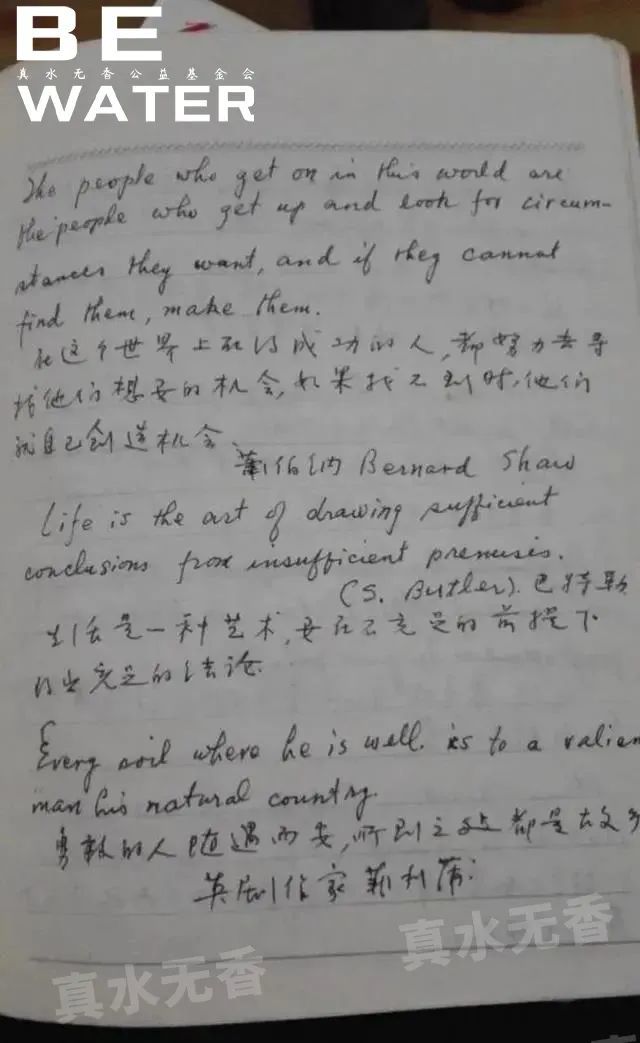 BE
真水无香公益基金会
WATER
The people who get on in this world are
the people who get up and look for circum-
stances they want, and if they cannot
find them, make them.
在这个世界上取得成功的人,都努力去寻
找他们想要的机会,如果找不到时,他们
就自己创造机会.
萧伯纳 Bernard Shaw
Life is the art of drawing sufficient
conclusions from insufficient premises.
(S. Butler). 巴特勒
生活是一种艺术,要在不充足的前提下
得出充足的结论.
Every soil where he is well is to a valien
man his natural country.
勇敢的人随遇而安,所到之处都是故乡
英剧作家 菲利浦
真水无香
真水无香